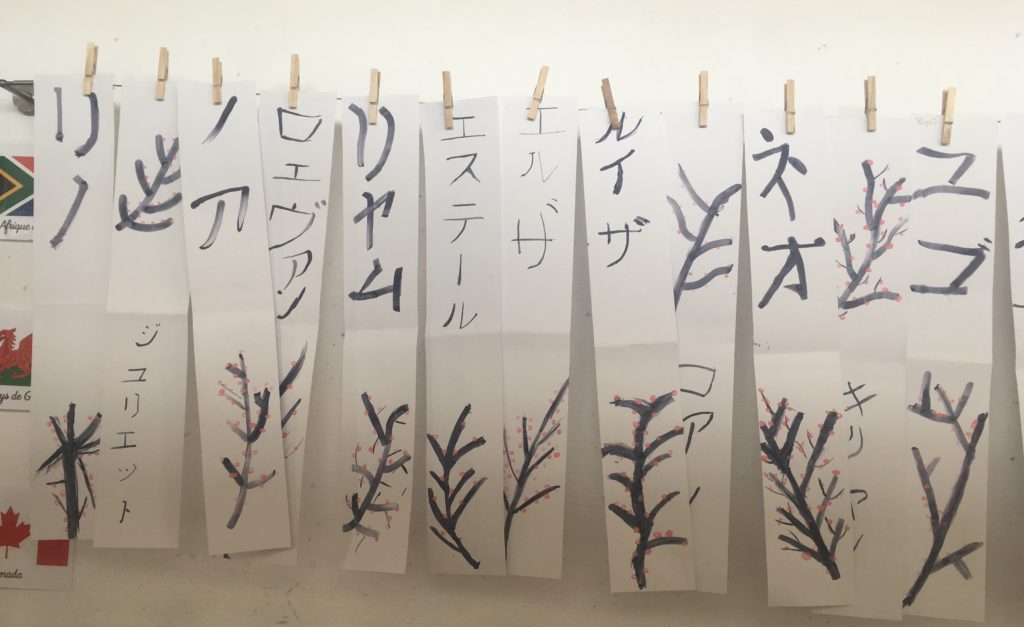 リノ
ジュリエット
ノア
ロエヴァン
リヤム
エステール
エルザ
ルイザ
ネオ
キリア
ユゴ
Afrique
ys de G
nada